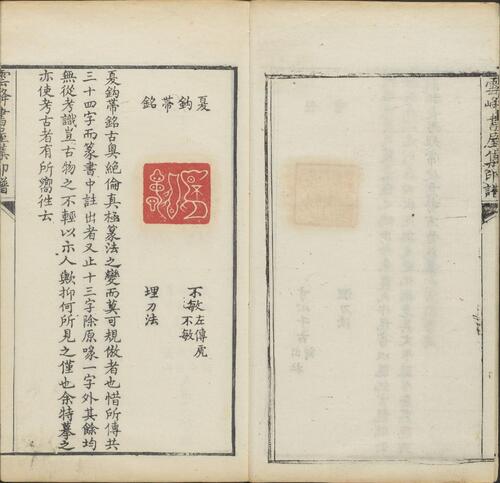 雲峰書屋集印譜
夏鈎帶銘
不敏左傳
不敏
埋刀法
夏鈎帶銘古奧絕倫真極篆法之變而莫可規倣者也惜所傳共
三十四字而篆書中註出者又止十三字除原喙一字外其餘均
無從考識豈古物之不輕以示人歟抑何所見之僅也余特摹之
亦使考古者有所嚮往云
雲峰書屋集印譜